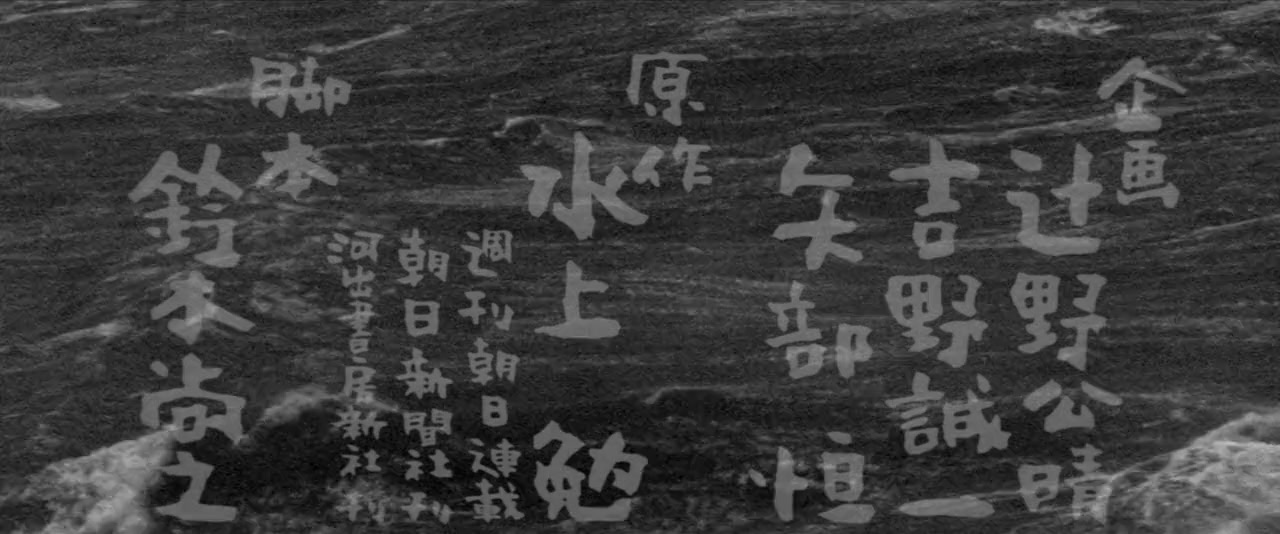 企画
辻野公晴
吉野誠一
矢部恒
原作
水上勉
週刊朝日連載
朝日新聞社刊
河出書房新社刊
脚本
鈴木尚之